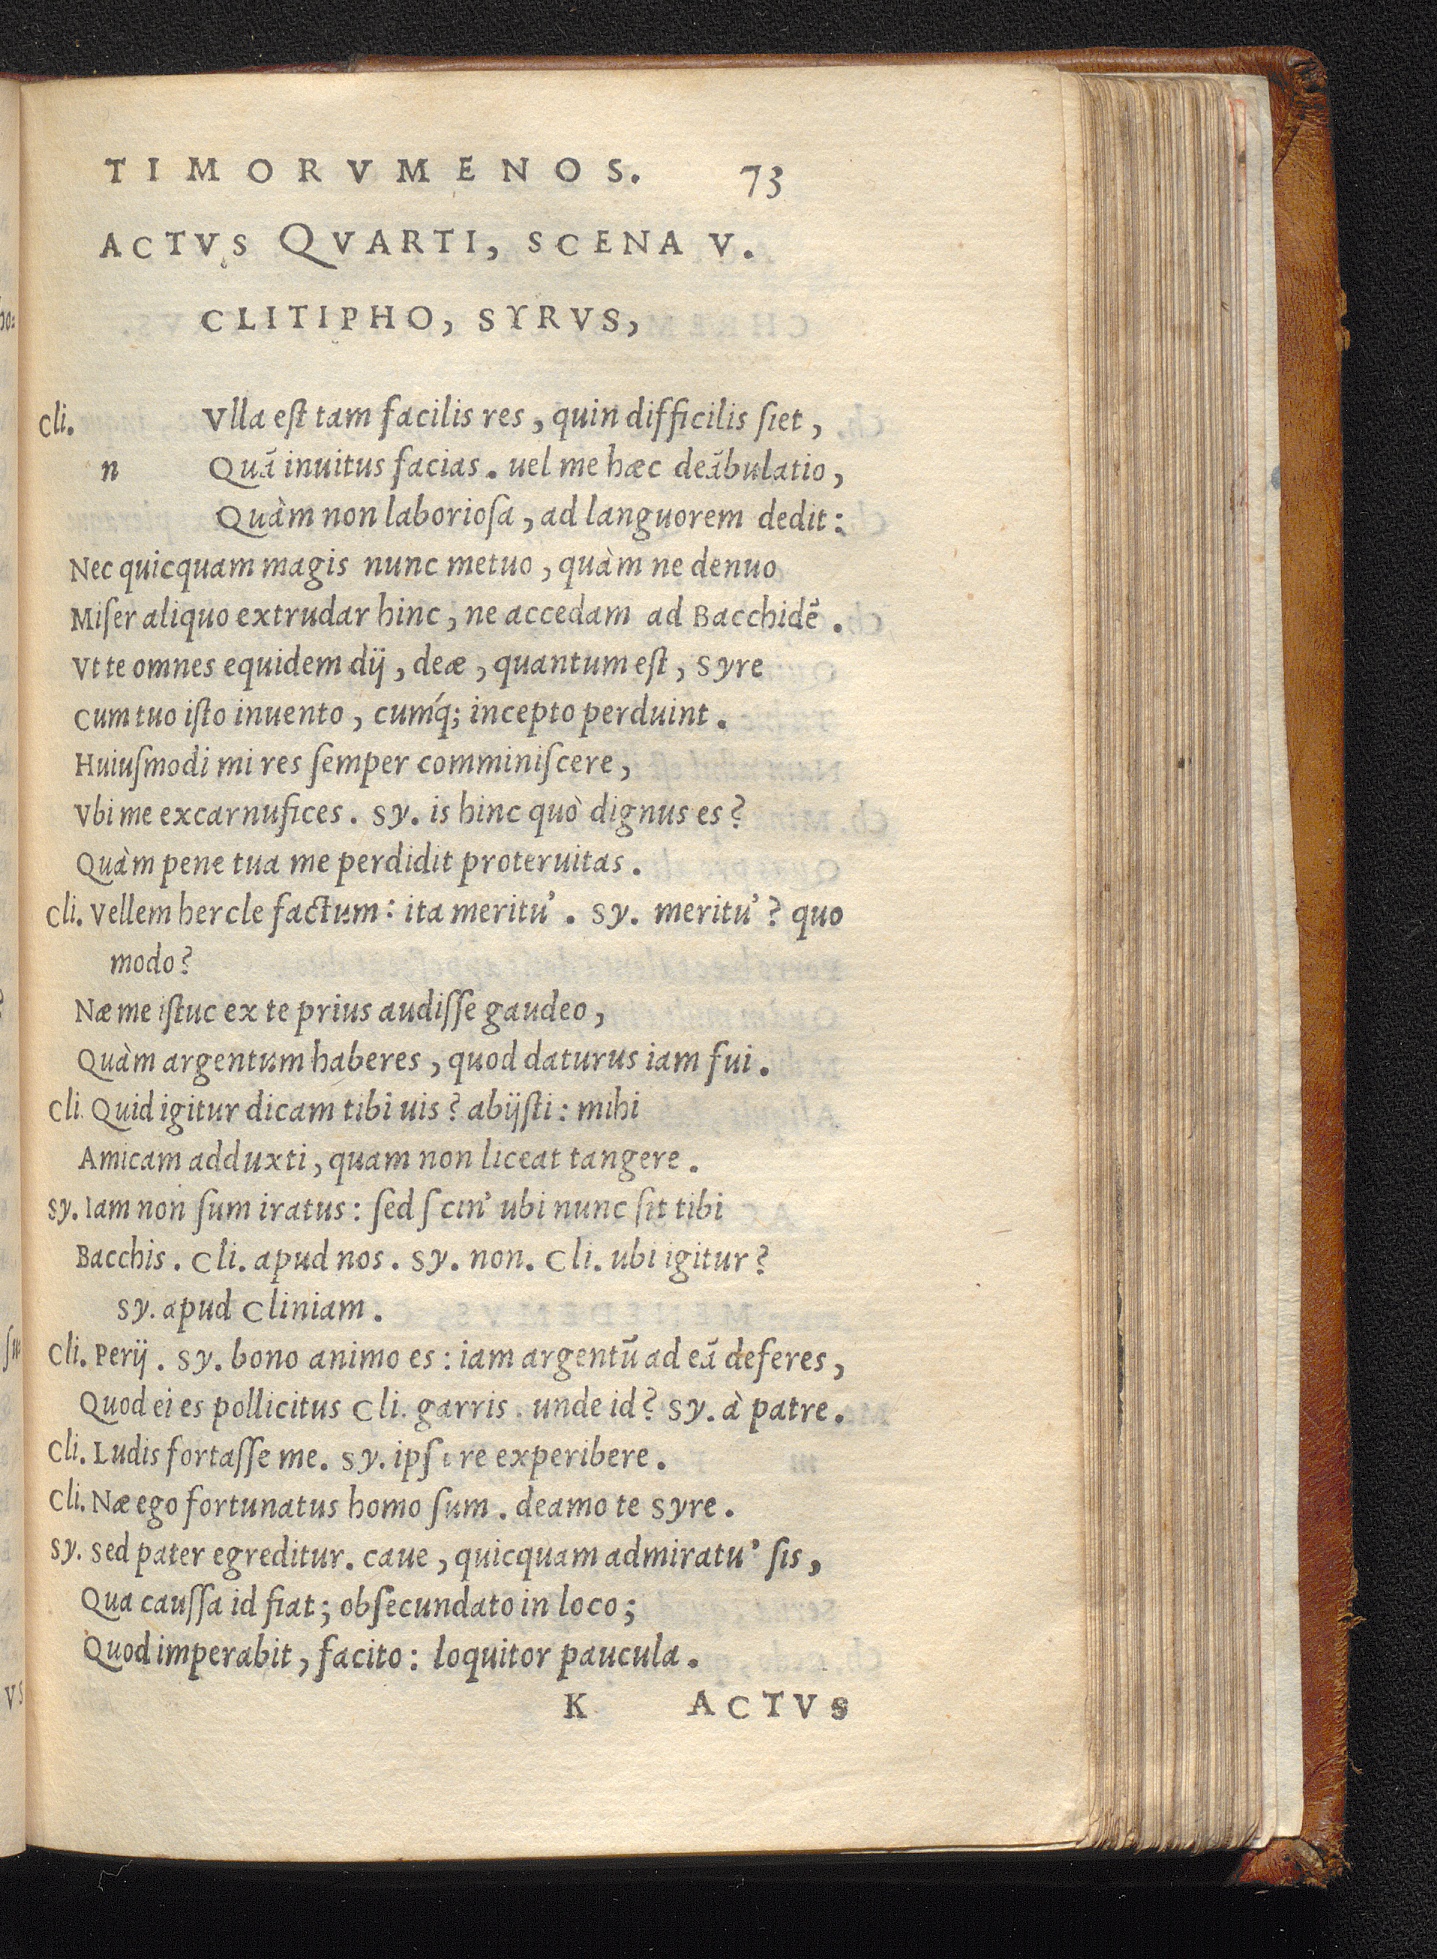 TIMORVMENOS. 73
ACTVS QVARTI, SCENA V.
CLITIPHO, SYRVS,
Cli. Vlla eſt tam facilis res, quin difficilis ſiet,
n Quã inuitus facias. uel me hæc deãbulatio,
Quàm non laborioſa, ad languorem dedit:
Nec quicquam magis nunc metuo, quàm ne denuo
Miſer aliquo extrudar hinc, ne accedam ad Bacchidẽ.
Vt te omnes equidem dij, deæ, quantum eſt, Syre
Cum tuo iſto inuento, cumq́; incepto perduint.
Huiuſmodi mi res ſemper comminiſcere,
Vbi me excarnufices. Sy. is hinc quò dignus es?
Quàm pene tua me perdidit proteruitas.
Cli. Vellem hercle factum: ita meritu'. Sy. meritu'? quo
modo?
Næ me iſtuc ex te prius audiſſe gaudeo,
Quàm argentum haberes, quod daturus iam fui.
Cli. Quid igitur dicam tibi uis? abijſti: mihi
Amicam adduxti, quam non liceat tangere.
Sy. Iam non ſum iratus: ſed ſcin' ubi nunc ſit tibi
Bacchis. Cli. apud nos. Sy. non. Cli. ubi igitur?
Sy. apud Cliniam.
Cli. Perij. Sy. bono animo es: iam argentũ ad eã deferes,
Quod ei es pollicitus Cli. garris. unde id? Sy. à patre.
Cli. Ludis fortaſſe me. Sy. ipſa re experibere.
Cli. Næ ego fortunatus homo ſum. deamo te Syre.
Sy. Sed pater egreditur. caue, quicquam admiratu' ſis,
Qua cauſſa id fiat; obſecundato in loco;
Quod imperabit, facito: loquitor paucula.
K ACTVS